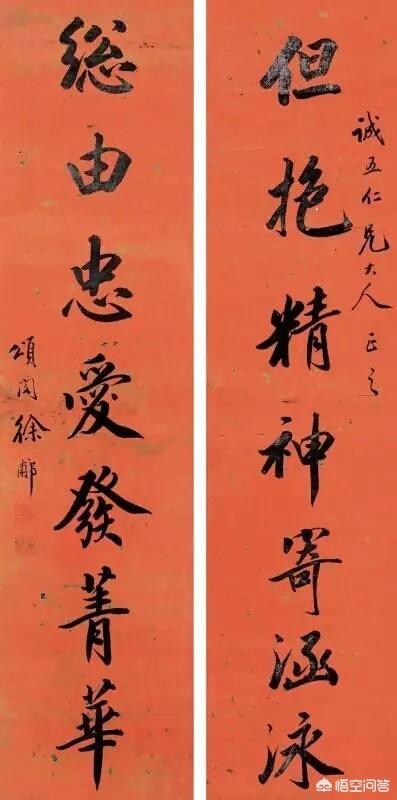 诚五仁兄大人正之
但抱精神寄涵泳
総由忠愛發菁華
頌閣徐郙
悟空问答